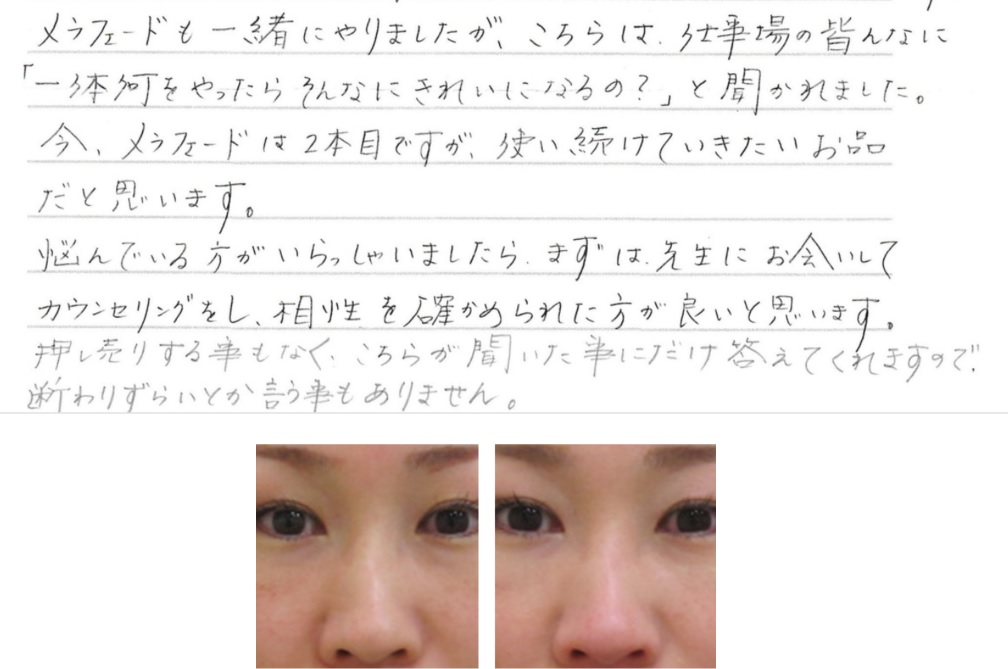 メラフェードも一緒にやりましたが、こちらは、仕事場の皆んなに
「一体何をやったらそんなにきれいになるの？」と聞かれました。
今、メラフェードは2本目ですが、使い続けていきたいお品
だと思います。
悩んでいる方がいらっしゃいましたら、まずは、先生にお会いして
カウンセリングをし、相性を確かめられた方が良いと思います。
押し売りする事もなく、こちらが聞いた事にだけ答えてくれますので、
断わりずらいとか言う事もありません。